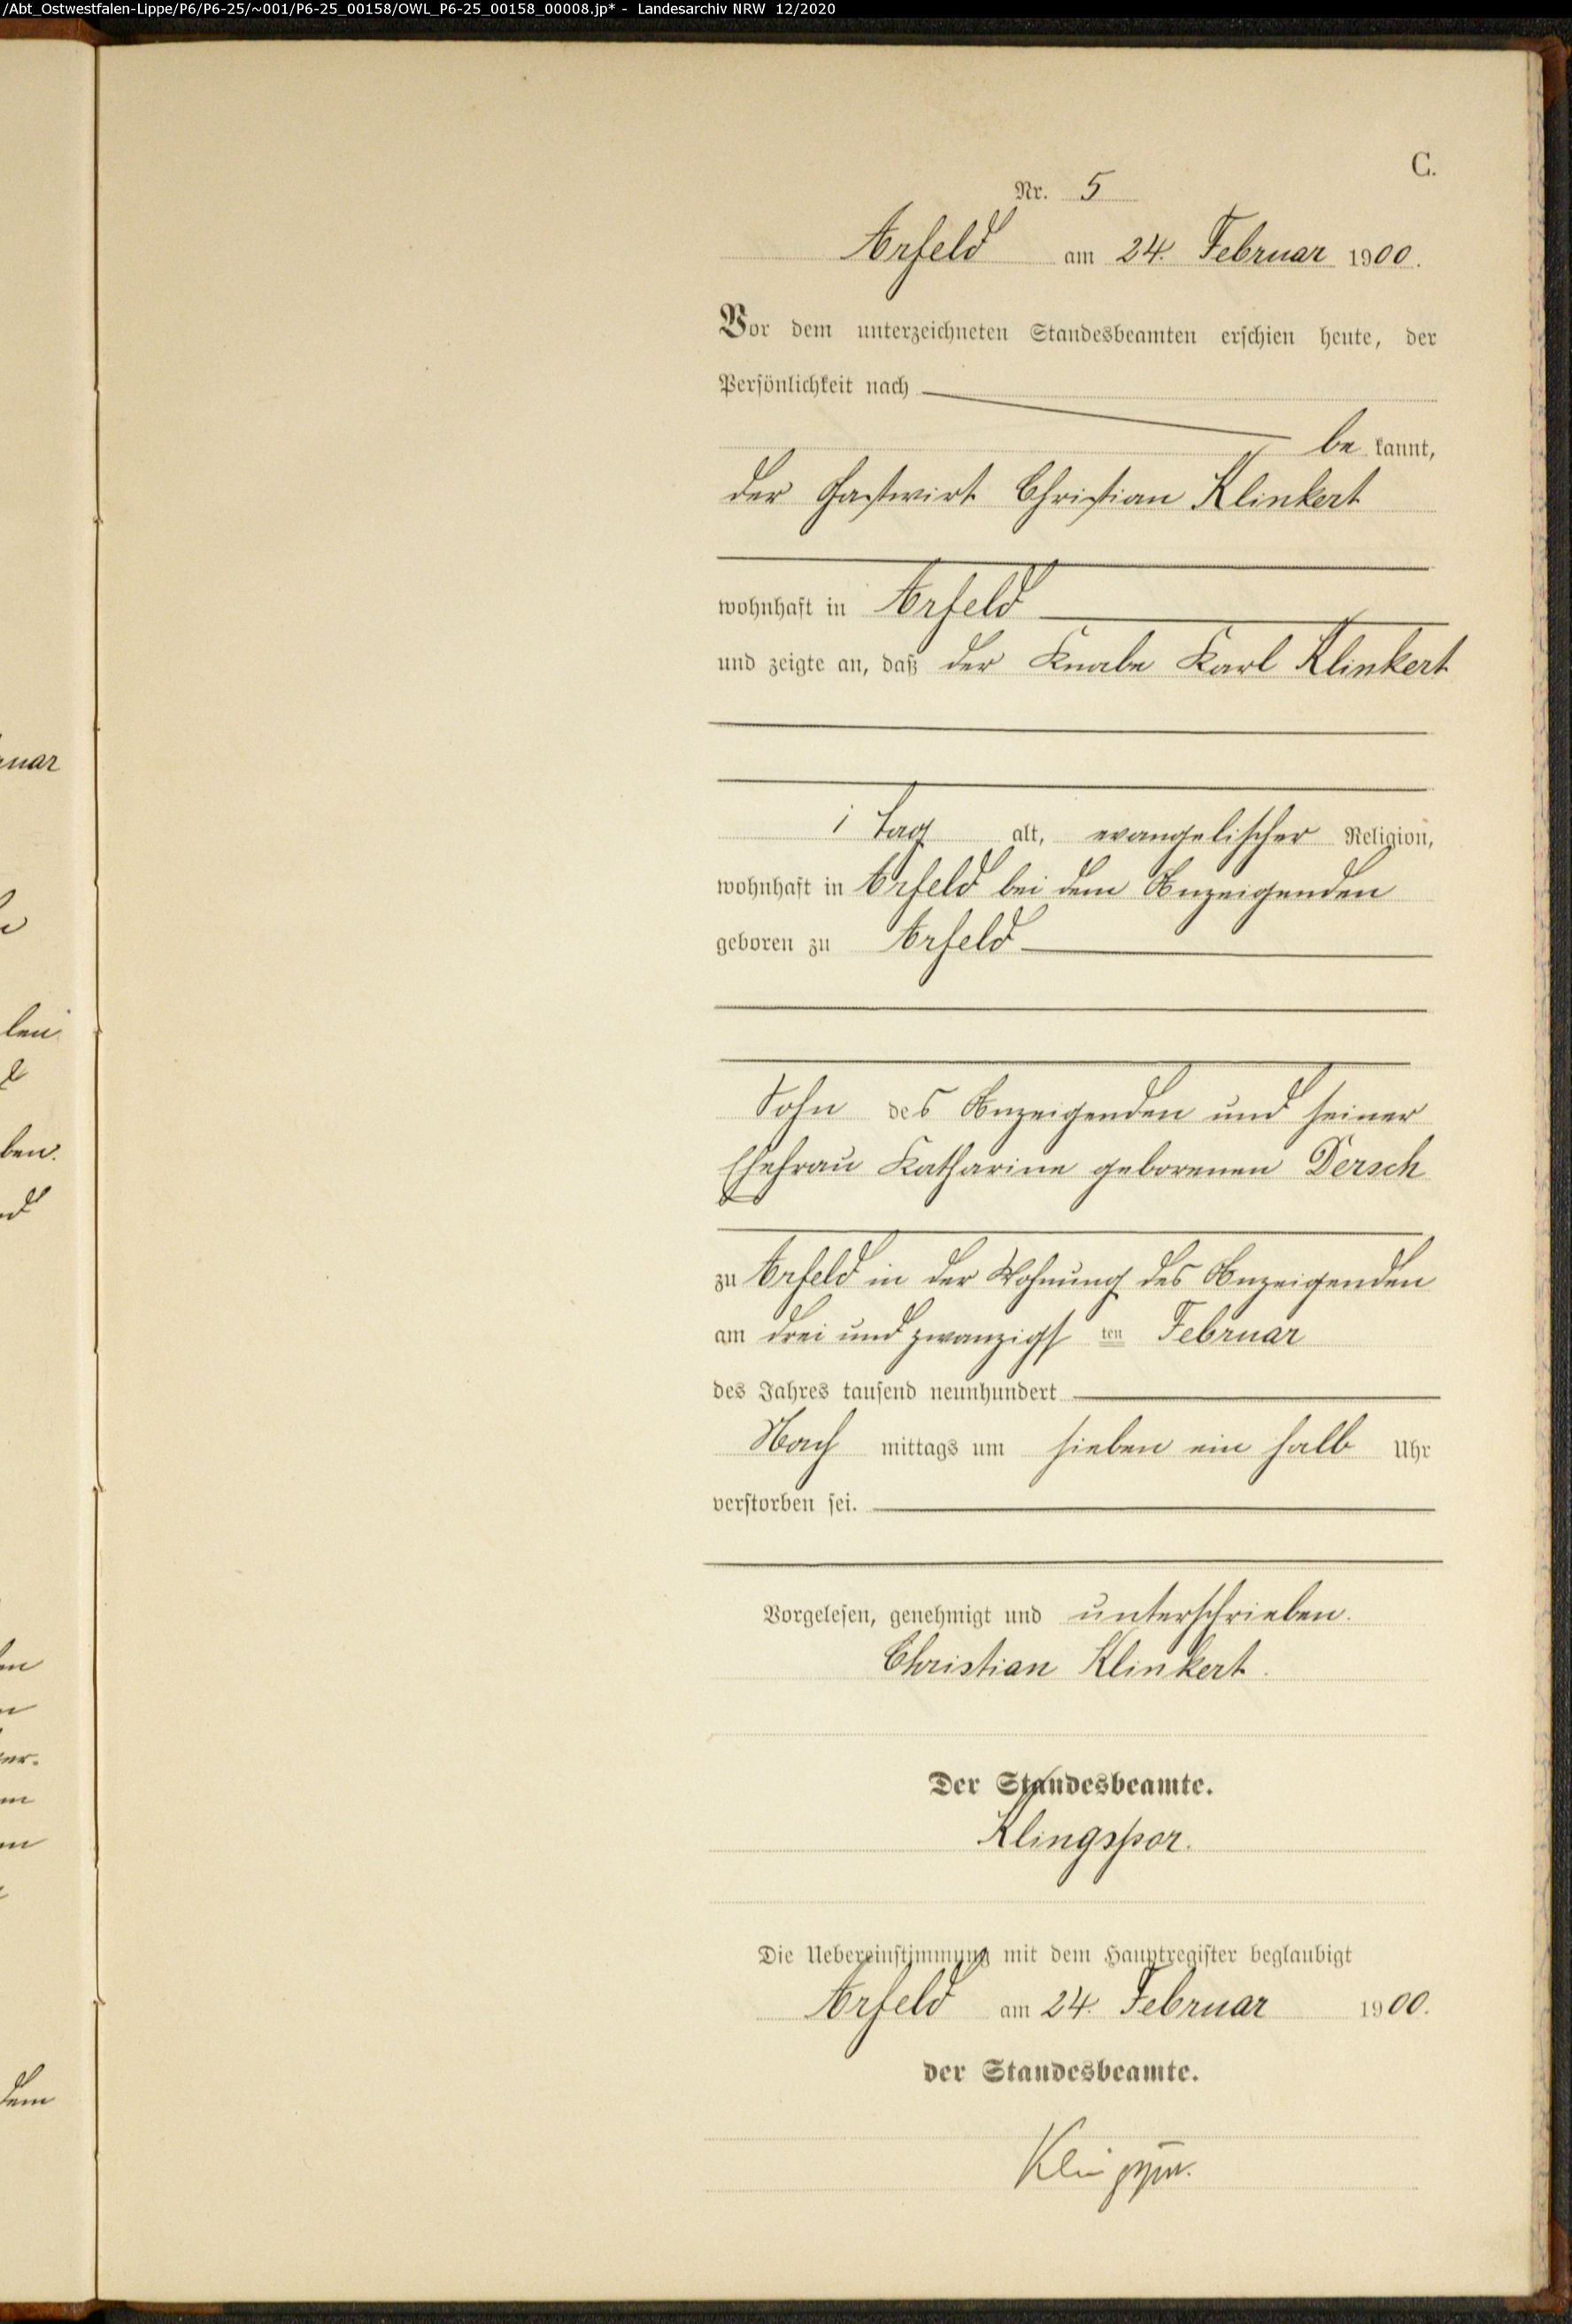 /Abt_Ostwestfalen-Lippe/P6/P6-25/~001/P6-25_00158/OWL_P6-25_00158_00008.jp* - Landesarchiv NRW 12/2020
C.
Nr. 5
Arfeld am 24. Februar 1900.
Vor dem unterzeichneten Standesbeamten erschien heute, der
Persönlichkeit nach
be kannt,
der Gastwirt Christian Klinkert
wohnhaft in Arfeld
und zeigte an, daß der Knabe Karl Klinkert
1 Tag alt, evangelischer Religion,
wohnhaft in Arfeld bei dem Anzeigenden
geboren zu Arfeld
Sohn des Anzeigenden und seiner
Ehefrau Katharine geborenen Dersch
zu Arfeld in der Wohnung des Anzeigenden
am drei und zwanzigsten Februar
des Jahres tausend neunhundert
Nach mittags um sieben ein halb Uhr
verstorben sei.
Vorgelesen, genehmigt und unterschrieben.
Christian Klinkert.
Der Standesbeamte.
Klingspor.
Die Uebereinstimmung mit dem Hauptregister beglaubigt
Arfeld am 24. Februar 1900.
der Standesbeamte.
Klingspor.
nuar
len
ben.
dem